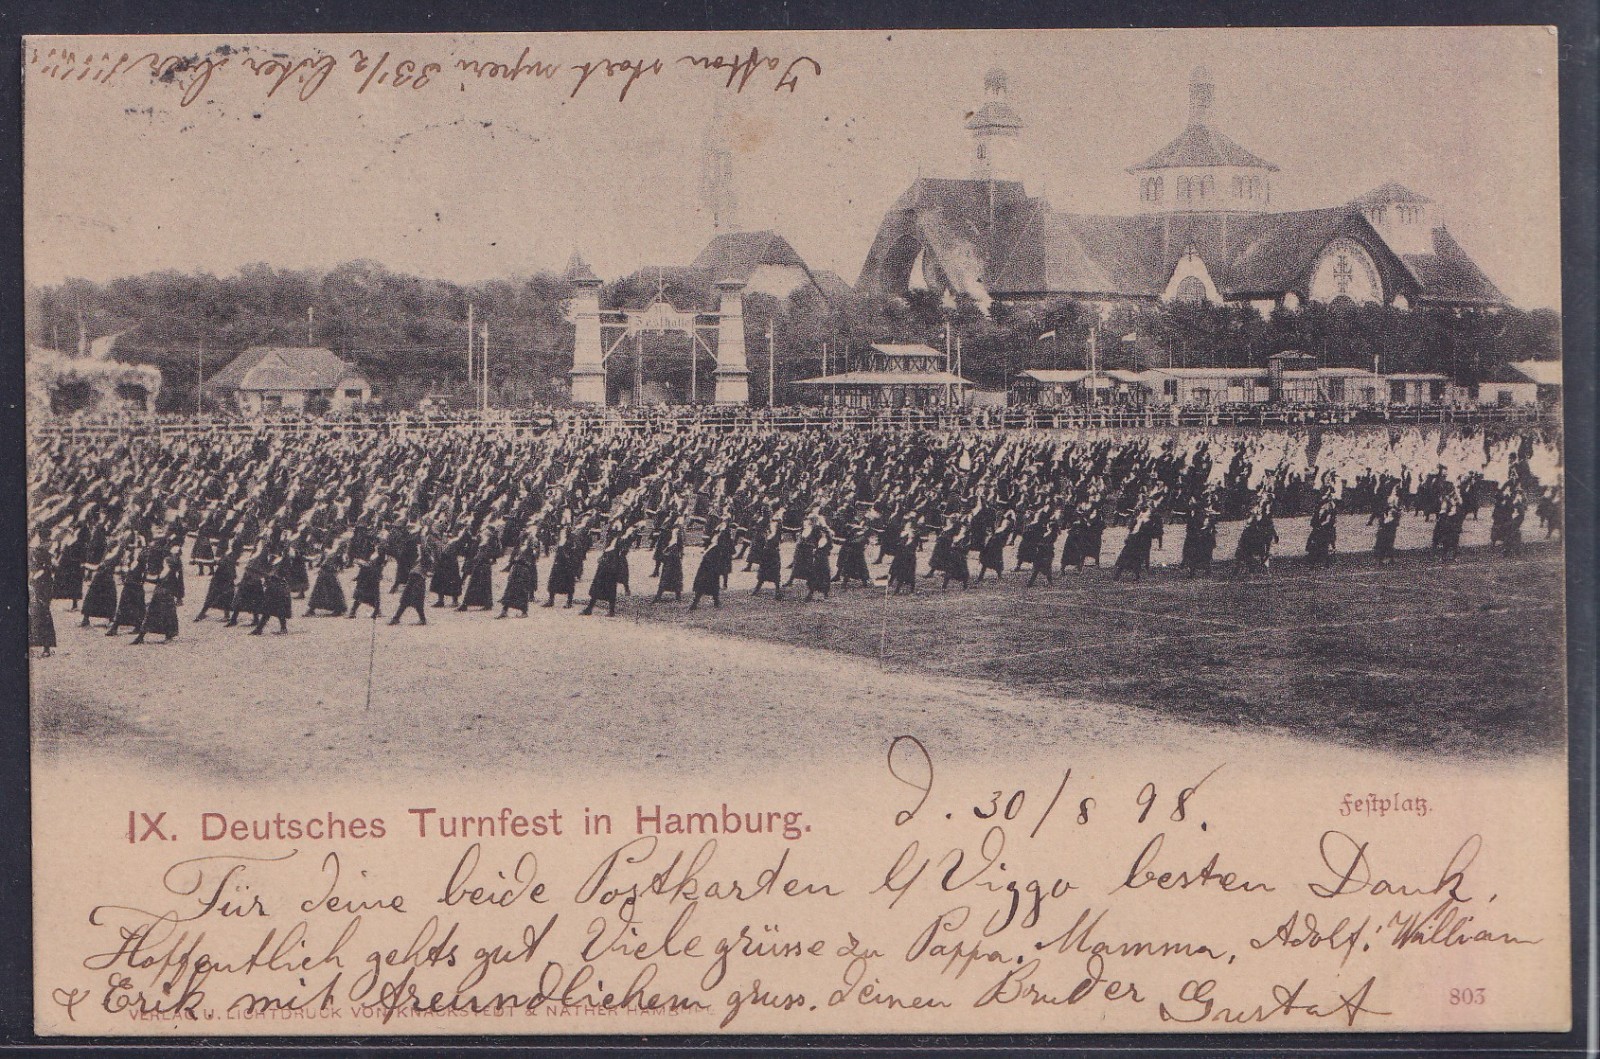 33½ Liter
Festhalle
IX. Deutsches Turnfest in Hamburg.
d. 30/8 98.
Festplatz.
Für deine beide Postkarten l/ Viggo besten Dank,
Hoffentlich gehts gut. Viele grüsse zu Pappa, Mamma, Adolf, William
& Erik mit freundlichem gruss. deinen Bruder Gustaf
VERLAG U. LICHTDRUCK VON KNACKSTEDT & NÄTHER HAMBURG
803